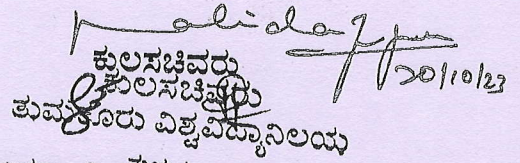 20/10/23
ಕುಲಸಚಿವರು
ಕುಲಸಚಿವರು
ತುಮಕೂರು ವಿಶ್ವವಿದ್ಯಾನಿಲಯ